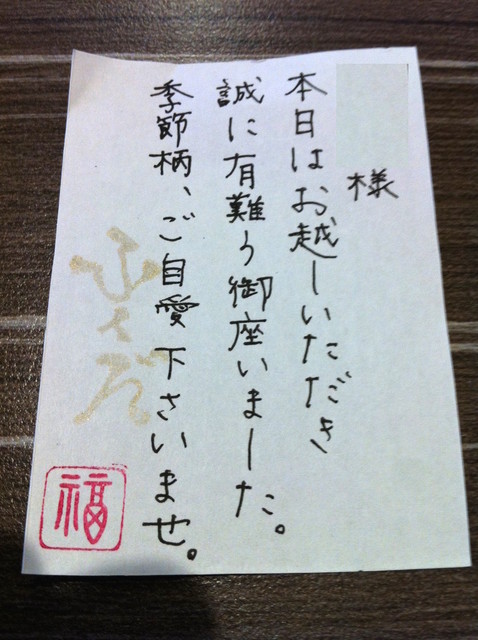 様
本日はお越しいただき
誠に有難う御座いました。
季節柄、ご自愛下さいませ。
ふくぞ
福